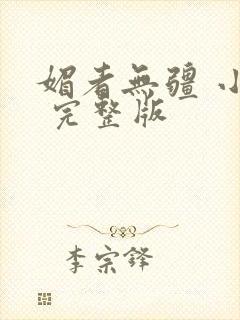 媚者無疆 小
完整版
李宗鋒